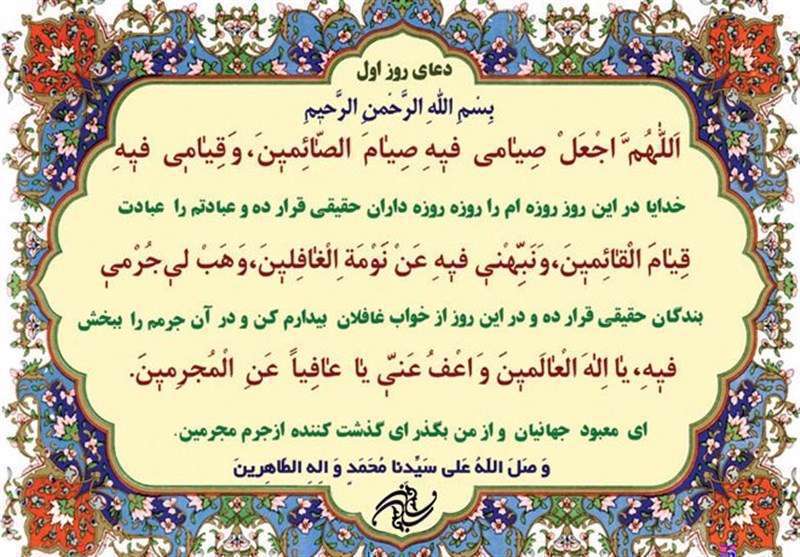 دعای روز اول
بِسْمِ اللهِ الرَّحْمنِ الرَّحیمِ
اَللّٰهُمَّ اجْعَلْ صِیٰامی فیٖهِ صِیٰامَ الصّٰائِمیٖنَ، وَقِیٰامیٖ فیٖهِ
خدایا در این روز روزه ام را روزه روزه داران حقیقی قرار ده و عبادتم را عبادت
قِیٰامَ الْقٰائِمیٖنَ، وَنَبِّهْنیٖ فیٖهِ عَنْ نَوْمَةِ الْغٰافِلیٖنَ، وَهَبْ لیٖ جُرْمیٖ
بندگان حقیقی قرار ده و در این روز از خواب غافلان بیدارم کن و در آن جرمم را ببخش
فیٖهِ، یٰا اِلٰهَ الْعٰالَمیٖنَ وَ اعْفُ عَنّیٖ یٰا عٰافِیاً عَنِ الْمُجرِمیٖنَ.
ای معبود جهانیان و از من بگذر ای گذشت کننده ازجرم مجرمین.
وَ صَلَ اللهُ عَلی سَیِّدنا مُحَمَدٍ وَ الِهِ الطّاهِرینَ